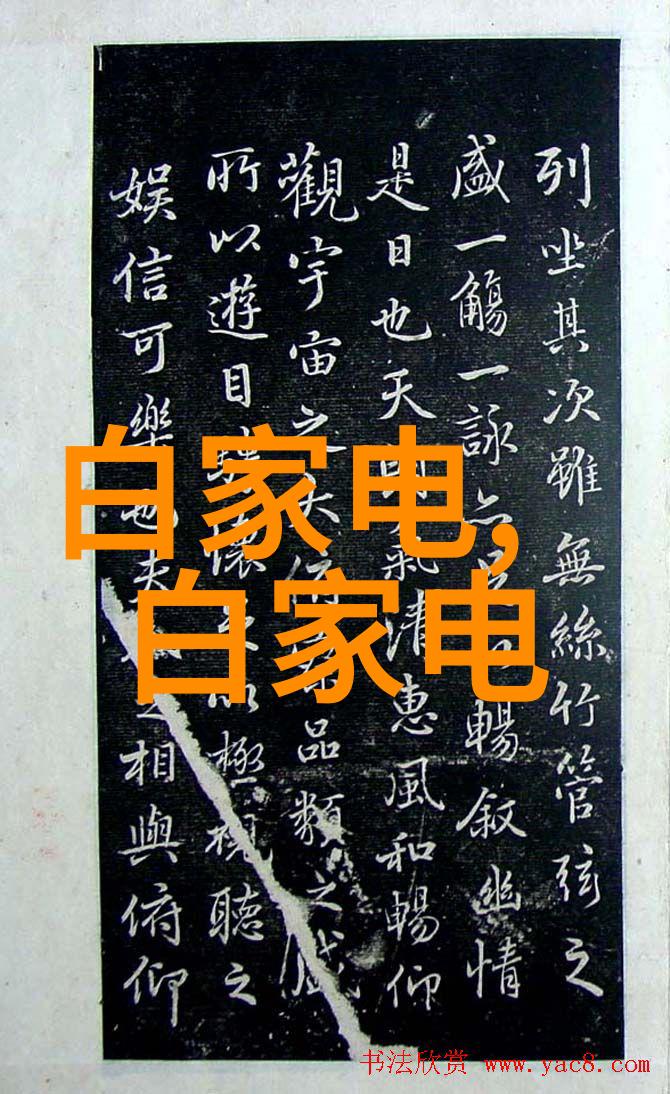 列坐其次雖無絲竹管弦之
盛一觴一詠亦暢叙幽情
是日也天氣清惠風和暢仰
觀宇宙之大品類之盛
所以遊目懷極視聽之
娱信可樂也夫之相與俯仰
白家电,
白家电
书法欣赏 www.yac8.com